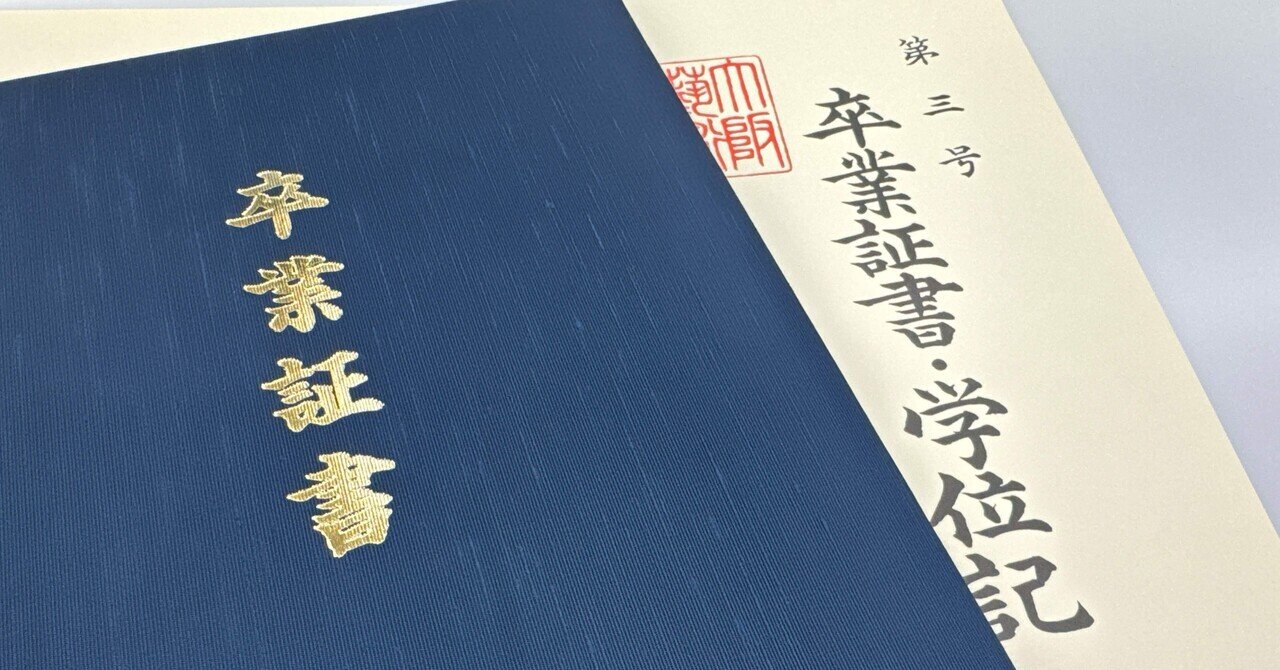 卒業証書
第三号
卒業証書・学位記